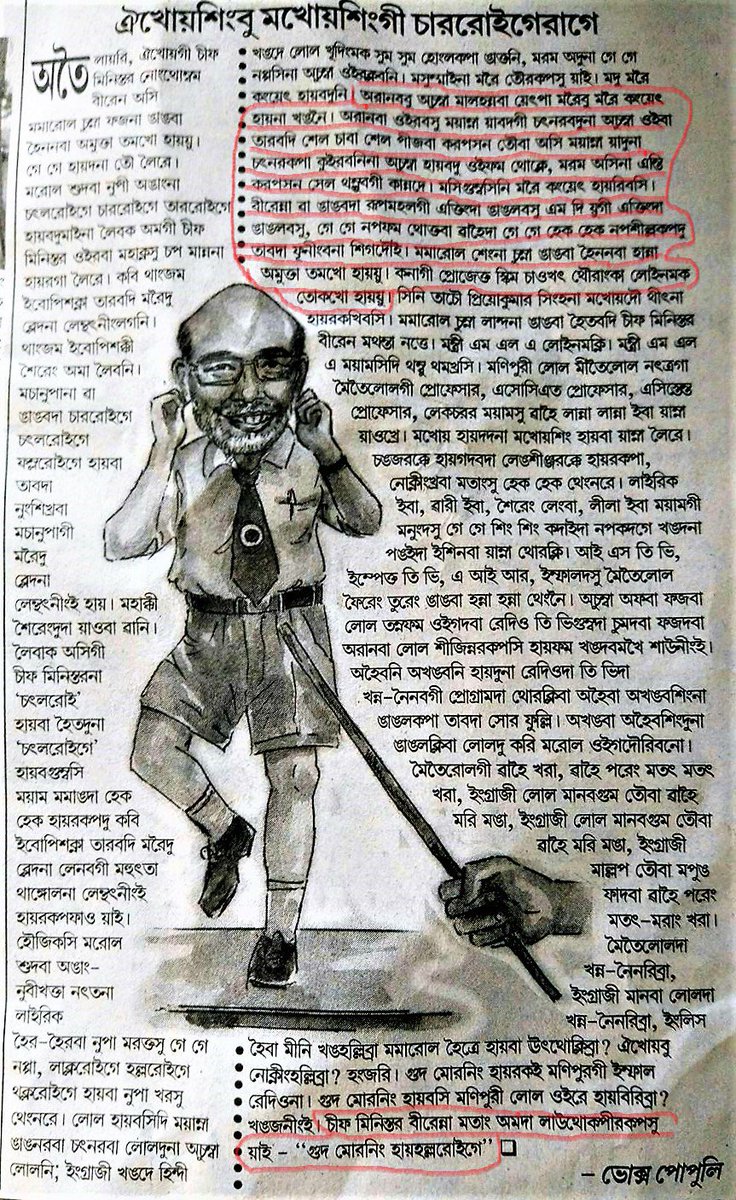 ঐখোয়শিংবু মখোয়শিংগী চাররোইগেরাগে
অতৈ লায়রি, ঐখোয়গী চীফ
মিনিস্তর নোংথোম্বম
বীরেন অসি
মমারোল চুম্না ফজনা ঙাঙবা
হৈননবা অমুক্তা তমখো হায়য়ু।
গে গে হায়দনা তৌ লৈরে।
মরোল শুদবা নুপী অঙাংনা
চৎলরোইগে চাররোইগে তাররোইগে
হায়বদুমাইনা লৈবক অমগী চীফ
মিনিস্তর ওইরবা মহাক্নসু চপ মান্ননা
হায়রগা লৈরে। কবি থাংজম
ইবোপিশক্না তারবদি মরৈদু
ব্লেদনা লেন্থৎনীংলগনি।
থাংজম ইবোপিশক্কী
শৈরেং অমা লৈবনি।
মচানুপানা বা
ঙাঙবদা চাররোইগে
চৎলরোইগে
ফম্লরোইগে হায়বা
তাবদা
নুংশিখ্রবা
মচানুপাগী
মরৈদু
ব্লেদনা
লেন্থৎনীংই হায়। মহাক্কী
শৈরেংদুদা য়াওবা ৱানি।
লৈবাক অসিগী
চীফ মিনিস্তরনা
‘চৎলরোই’
হায়বা হৈতদুনা
‘চৎলরোইগে’
হায়বগুম্বসি
ময়াম মমাঙদা হেক
হেক হায়রকপদু কবি
ইবোপিশক্না তারবদি মরৈদু
ব্লেদনা লেনবগী মহুৎতা
থাঙ্গোলনা লেন্থৎনীংই
হায়রকপফাও য়াই।
হৌজিকসি মরোল
শুদবা অঙাং-
নুবীখক্তা নৎতনা
লাইরিক
হৈর-হৈরবা নুপা মরক্তসু গে গে
নপ্পা, লাক্লরোইগে হল্লরোইগে
থক্লরোইগে হায়বা নুপা খরসু
থেংনরে। লোল হায়বসিদি ময়াম্না
ঙাঙনরবা চৎনরবা লোলদুনা অচুম্বা
লোলনি; ইংগ্রাজী খঙদে হিন্দী
খঙদে লোল খুদিংমক সুম সুম হোংলকপা ঙাক্তনি, মরম অদুনা গে গে
নপ্পসিনা অচুম্বা ওইরক্কবনি। মসুম্মাইনা মরৈ তৌরকপসু য়াই। মদু মরৈ
কংয়েৎ হায়বদুনি। অরানববু অচুম্বা মালহন্নবা য়েৎপা মরৈবু মরৈ কংয়েৎ
হায়না খঙনৈ। অরানবা ওইরবসু ময়াম্না য়াবদগী চৎনরবদুনা অচুম্বা ওইবা
তারবদি শেল চাবা শেল পাজবা করপসন তৌবা অসি ময়াম্না য়াদুনা
চৎনরকপা কুইরবনিনা অচুম্বা হায়বদু ওইফম থোক্লে, মরম অসিনা এন্তি
করপসন সেল থম্বুবগী কান্নদে। মসিগুম্বসিনি মরৈ কংয়েৎ হায়রিবসি।
বীরেন্না বা ঙাঙবদা রূপমহলগী এক্তিংদা ঙাঙলবসু এম দি য়ুগী এক্তিংদা
ঙাঙলবসু, গে গে নপফম থোক্তবা ৱাহৈদা গে গে হেক হেক নপশীল্লকপদু
তাবদা য়ুনীংবনা শিগদৌই। মমারোল শেংনা চুম্না ঙাঙবা হৈননবা হান্না
অমুক্তা তমখো হায়য়ু। কনাগী প্রোজেক্ত স্কিম চাওখৎ থৌরাংকা লোইনমক
তোকখো হায়য়ু। সিনি তাচৌ প্রিয়োকুমার সিংহনা মখোয়দৌ থীৎনা
হায়রকখিবসি। মমারোল চুম্না লান্দনা ঙাঙবা হৈতবদি চীফ মিনিস্তর
বীরেন মথন্তা নত্তে। মন্ত্রী এম এল এ লোইনমক্নি। মন্ত্রী এম এল
এ ময়ামসিদি থম্বু থমখ্রসি। মণিপুরী লোল মীতৈলোল নৎত্রগা
মৈতৈলোলগী প্রোফেসার, এসোসিএত প্রোফেসার, এসিস্তেন্ত
প্রোফেসার, লেকচরর ময়ামসু ৱাহৈ লান্না লান্না ইবা য়াম্না
য়াওখ্রে। মখোয় হায়দদনা মখোয়শিং হায়বা য়াম্না লৈরে।
চঙজরক্কে হায়গদবদা লেঙশীঞ্জরক্কে হায়রকপা,
নোক্নীংখ্রবা মতাংসু হেক হেক থেংনরে। লাইরিক
ইবা, ৱারী ইবা, শৈরেং লেংবা, লীলা ইবা ময়ামগী
মনুংদসু গে গে শিং শিং কদাইদা নপকদগে খঙদনা
পঙইদা ইশিনবা য়াম্না থোরক্নি। আই এস তি ভি,
ইম্পেক্ত তি ভি, এ আই আর, ইম্ফালদসু মৈতৈলোল
ফৈরেং তুরেং ঙাঙবা হন্না হন্না থেংনৈ। অচুম্বা অফবা ফজবা
লোল তম্নফম ওইগদবা রেদিও তি ভিগুম্বদা চুমদবা ফজদবা
অরানবা লোল শীজিন্নরকপসি হায়ফম খঙদবমখৈ শাউনীংই।
অহৈবনি অখঙবনি হায়দুনা রেদিওদা তি ভিদা
খন্ন-নৈনবগী প্রোগ্রামদা থোরক্লিবা অহৈবা অখঙবশিংনা
ঙাঙলকপা তাবদা সোর য়ুল্লি। অখঙবা অহৈবশিংদুনা
ঙাঙলক্লিবা লোলদু করি মরোল ওইগদৌরিবনো।
মৈতৈরোলগী ৱাহৈ খরা, ৱাহৈ পরেং মতৎ মতৎ
খরা, ইংগ্রাজী লোল মানবগুম তৌবা ৱাহৈ
মরি মঙা, ইংগ্রাজী লোল মানবগুম তৌবা
ৱাহৈ মরি মঙা, ইংগ্রাজী
মাল্লপ তৌবা মপুঙ
ফাদবা ৱাহৈ পরেং
মতৎ-মরাং খরা।
মৈতৈলোলদা
খন্ন-নৈনরিব্রা,
ইংগ্রাজী মানবা লোলদা
খন্ন-নৈনরিব্রা, ইংলিস
হৈবা মীনি খঙহল্লিব্রা মমারোল হৈত্রে হায়বা উৎথোক্লিব্রা? ঐখোয়বু
নোক্নীংহল্লিব্রা? হংজরি। গুদ মোরনিং হায়রকই মণিপুরগী ইম্ফাল
রেদিওনা। গুদ মোরনিং হায়বসি মণিপুরী লোল ওইরে হায়বিরিব্রা?
খঙজনীংই। চীফ মিনিস্তর বীরেন্না মতাং অমদা লাউথোকপীরকপসু
য়াই – “গুদ মোরনিং হায়হল্লরোইগে”
– ভোক্স পোপুলি